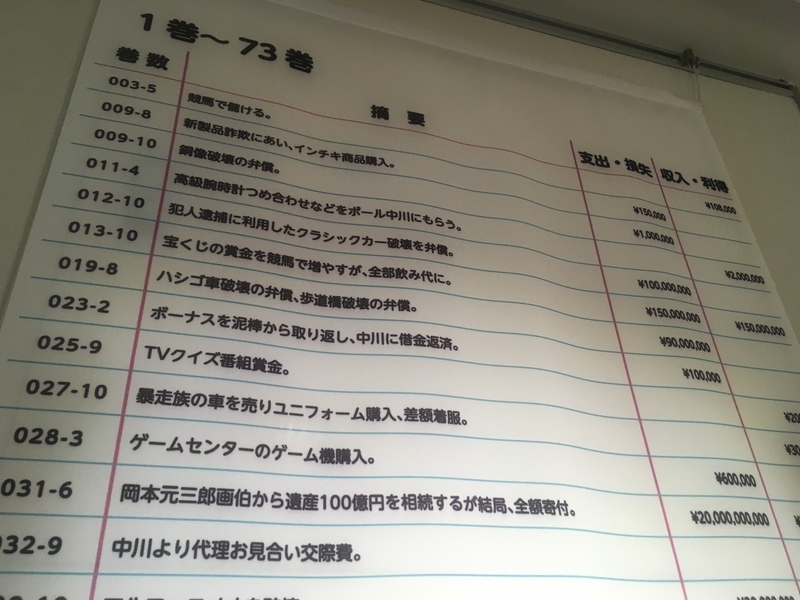 1巻～73巻
巻数 摘要 支出・損失 収入・利得
003-5 競馬で儲ける。 ¥108,000
009-8 新製品詐欺にあい、インチキ商品購入。 ¥150,000
009-10 銅像破壊の弁償。 ¥1,000,000
011-4 高級腕時計つめ合わせなどをポール中川にもらう。 ¥2,000,000
012-10 犯人逮捕に利用したクラシックカー破壊を弁償。 ¥100,000,000
013-10 宝くじの賞金を競馬で増やすが、全部飲み代に。 ¥150,000,000 ¥150,000,000
019-8 ハシゴ車破壊の弁償、歩道橋破壊の弁償。 ¥90,000,000
023-2 ボーナスを泥棒から取り返し、中川に借金返済。 ¥100,000
025-9 TVクイズ番組賞金。
027-10 暴走族の車を売りユニフォーム購入、差額着服。
028-3 ゲームセンターのゲーム機購入。 ¥600,000
031-6 岡本元三郎画伯から遺産100億円を相続するが結局、全額寄付。 ¥20,000,000,000
032-9 中川より代理お見合い交際費。